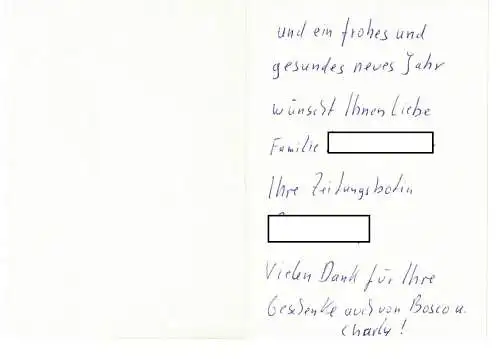 und ein frohes und
gesundes neues Jahr
wünscht Ihnen Liebe
Familie
Ihre Zeitungsbotin
Vielen Dank für Ihre
Geschenke auch von Bosco u.
Charly!